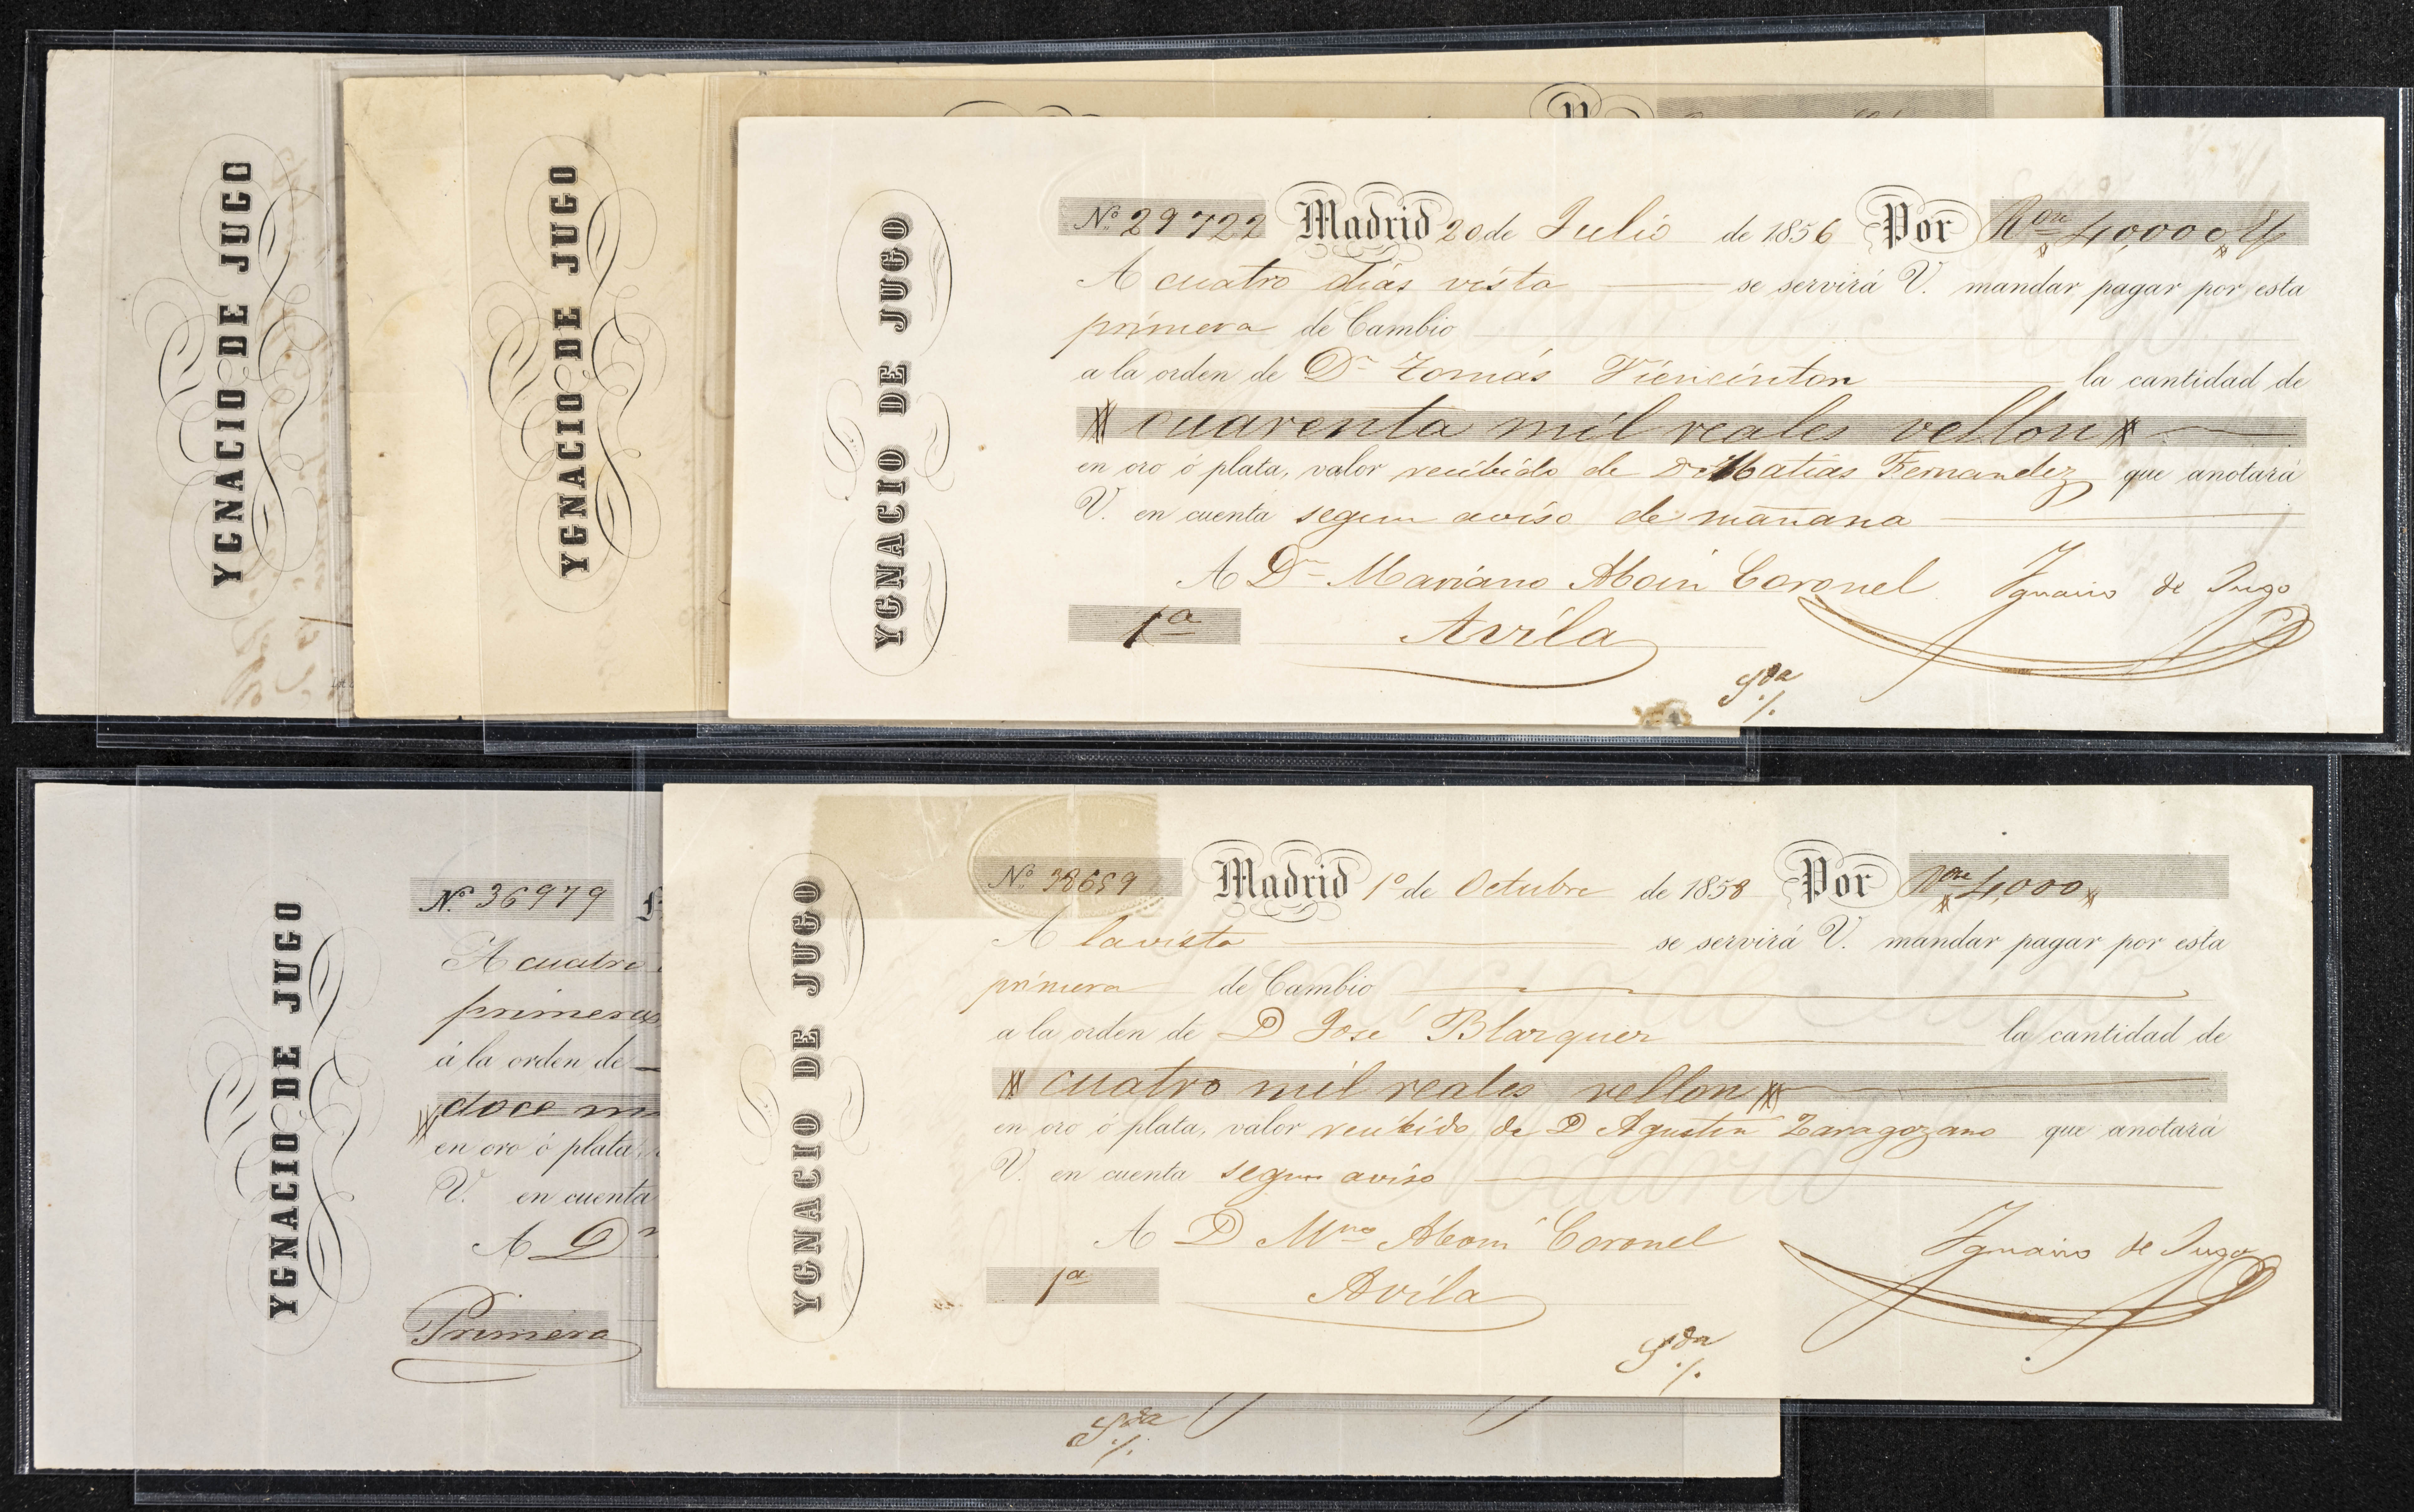 YGNACIO DE JUGO
YGNACIO DE JUGO
YGNACIO DE JUGO
Nº 29722 Madrid 20 de Julio de 1856 Por Rvn 40,000
A cuatro dias vista se servirá V. mandar pagar por esta
primera de Cambio
a la orden de Dn Tomás la cantidad de
cuarenta mil reales vellon
en oro ó plata, valor recibido de Dn Matias Fernandez que anotará
V. en cuenta segun aviso de mañana
A Dn Mariano Aboin Coronel Ygnacio de Jugo
1a Avila
YGNACIO DE JUGO
Nº 36979
A cuatro
primera
á la orden de
doce
en oro ó plata,
V. en cuenta
A Dn
Primera
YGNACIO DE JUGO
Nº 38659 Madrid 1º de Octubre de 1858 Por Rvn 4,000
A la vista se servirá V. mandar pagar por esta
primera de Cambio
a la orden de D José Blazquez la cantidad de
cuatro mil reales vellon
en oro ó plata, valor recibido de D Agustin Zaragozano que anotará
V. en cuenta segun aviso
A D Mno Aboin Coronel Ygnacio de Jugo
1a Avila